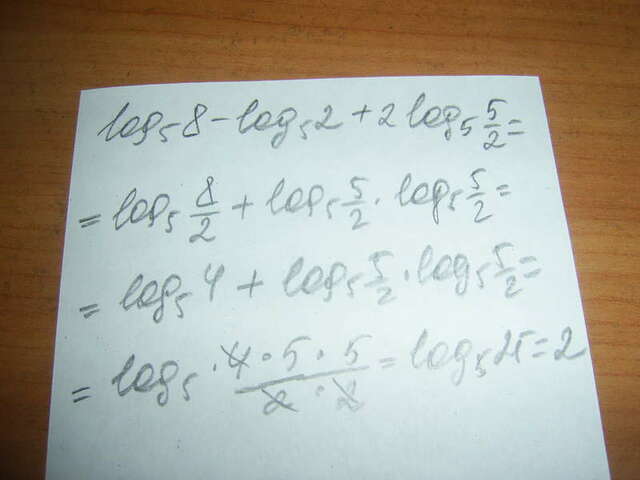 log₅8 - log₅2 + 2log₅ 5/2 =
= log₅ 8/2 + log₅ 5/2 · log₅ 5/2 =
= log₅4 + log₅ 5/2 · log₅ 5/2 =
= log₅ · 4·5·5/2·2 = log₅25 = 2